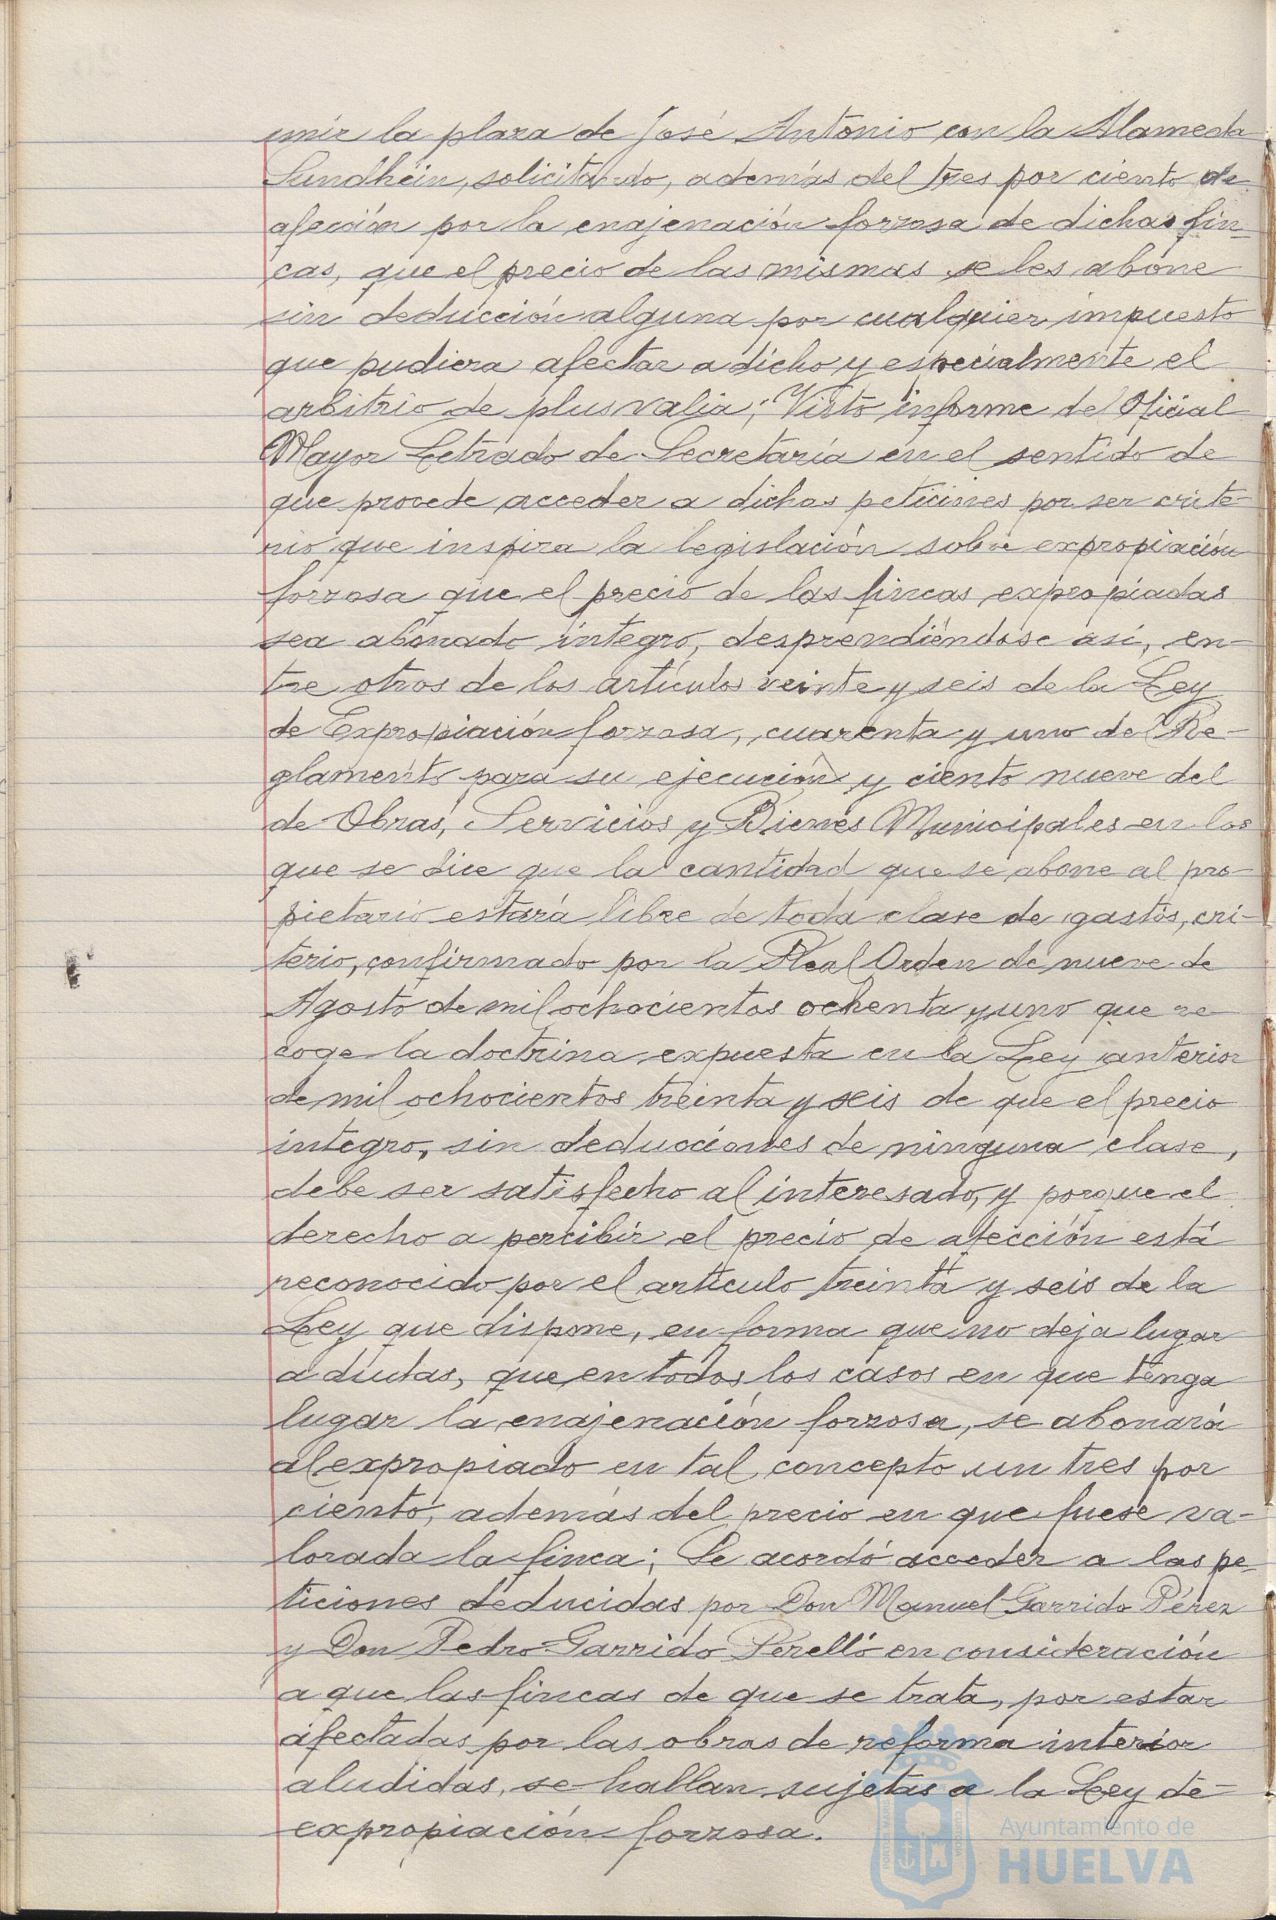 unir la plaza de José Antonio con la Alameda
Sundhein, solicitando, además del tres por ciento de
afección por la enajenación forzosa de dichas fin-
cas, que el precio de las mismas se les abone
sin deducción alguna por cualquier impuesto
que pudiera afectar a dicho y especialmente el
arbitrio de plus valia; Visto informe del Oficial
Mayor Letrado de Secretaría en el sentido de
que procede acceder a dichas peticiones por ser crite-
rio que inspira la legislación sobre expropiación
forzosa que el precio de las fincas expropiadas
sea abonado íntegro, desprendiéndose así, en-
tre otros de los artículos veinte y seis de la Ley
de Expropiación forzosa, cuarenta y uno del Re-
glamento para su ejecución y ciento nueve del
de Obras, Servicios y Bienes Municipales en los
que se dice que la cantidad que se abone al pro-
pietario estará libre de toda clase de gastos, cri-
terio, confirmado por la Real Orden de nueve de
Agosto de mil ochocientos ochenta y uno que re-
coge la doctrina expuesta en la Ley anterior
de mil ochocientos treinta y seis de que el precio
integro, sin deducciones de ninguna clase,
debe ser satisfecho al interesado, y porque el
derecho a percibir el precio de afección está
reconocido por el artículo treinta y seis de la
Ley que dispone, en forma que no deja lugar
a dudas, que en todos los casos en que tenga
lugar la enajenación forzosa, se abonará
al expropiado en tal concepto un tres por
ciento, además del precio en que fuese va-
lorada la finca; Se acordó acceder a las pe-
ticiones deducidas por Don Manuel Garrido Pérez
y Don Pedro Garrido Perelló en consideración
a que las fincas de que se trata, por estar
afectadas por las obras de reforma interior
aludidas, se hallan sujetas a la Ley de
expropiación forzosa.
Ayuntamiento de
HUELVA